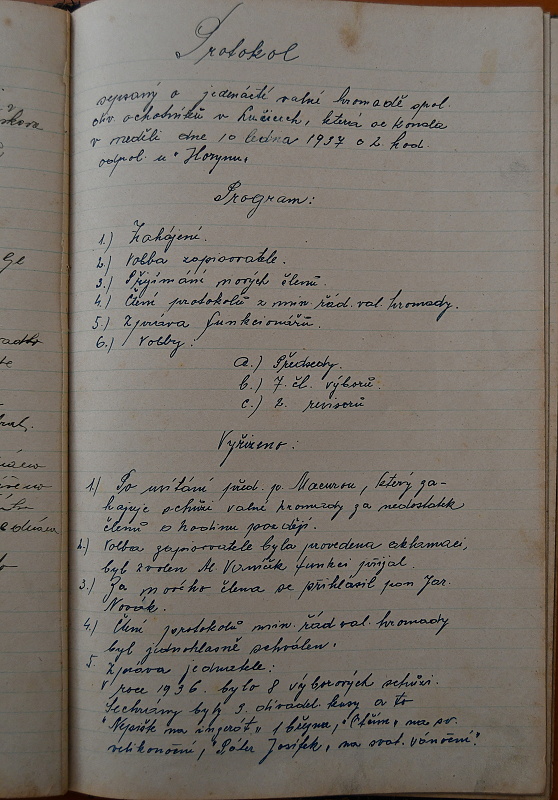 Protokol
sepsaný o jedenácté valné hromadě spol.
div. ochotníků v Lučicích, která se konala
v neděli dne 10 ledna 1937 o 2. hod.
odpol. u "Hosynů"
Program:
1.) Zahájení.
2.) Volba zapisovatele.
3.) Přijímání nových členů.
4.) Čtení protokolů z min. řád. val. hromady.
5.) Zpráva funkcionářů.
6.) Volby:
a.) Předsedy.
b.) 7. čl. výborů.
c.) 2. revisorů
Vyřízeno:
1.) Po uvítání před. p. Macurou, který za-
hajuje schůzi valné hromady za nedostatek
členů o hodinu pozdějí.
2.) Volba zapisovatele byla provedena aklamací,
byl zvolen Al. Vaníček funkci přijal.
3.) Za nového člena se přihlásil pan Jar.
Novák.
4.) Čtení protokolů min. řád val. hromady
byl jednohlasně schválen.
5. Zpráva jednatele:
V roce 1936. bylo 8 výborových schůzí.
Sehrány byly 3. divadel. kusy a to
"Nejsitk na inzerát" 1 března, na sv.
velikonoční, "Páter Josífek" na svat. vánoční.